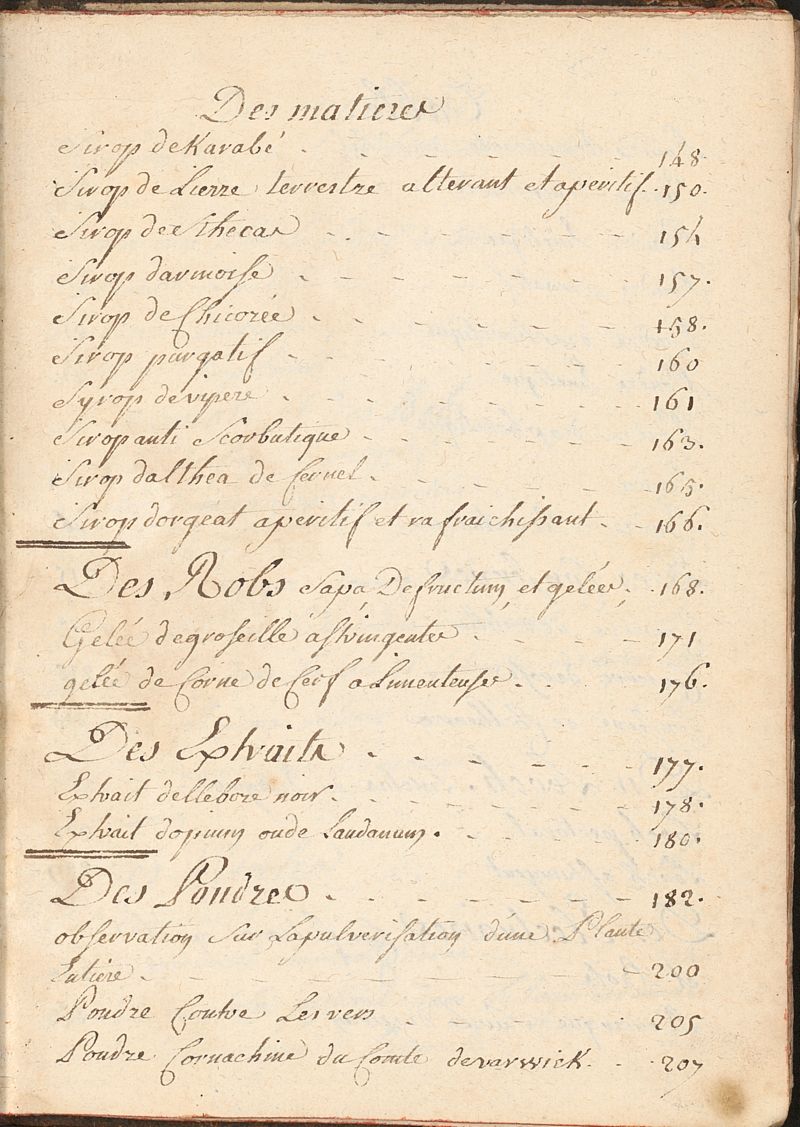 Des matieres
Sirop de Karabé 148
Sirop de Lierre terrestre alterant et aperitif. 150.
Sirop de sthecas 154
Sirop darmoise 157.
Sirop de Chicorée 158.
Sirop purgatif 160
Syrop de vipere 161
Sirop anti Scorbutique 163.
Sirop dalthea de fernel 165.
Sirop dorgeat aperitif et rafraichissant 166.
Des Robs Sapa, Defructum, et gelées, 168.
Gelée de groseille astringente 171
gelée de Corne de Cerf alimenteuse 176.
Des Extraits 177.
Extrait dellebore noir 178.
Extrait dopium oude Laudanum. 180.
Des Poudres 182.
observation sur Lapulverisation dúne Plante
Entiere 200
Poudre Contre Les vers 205
Poudre Cornachine du Comte devarwick. 207